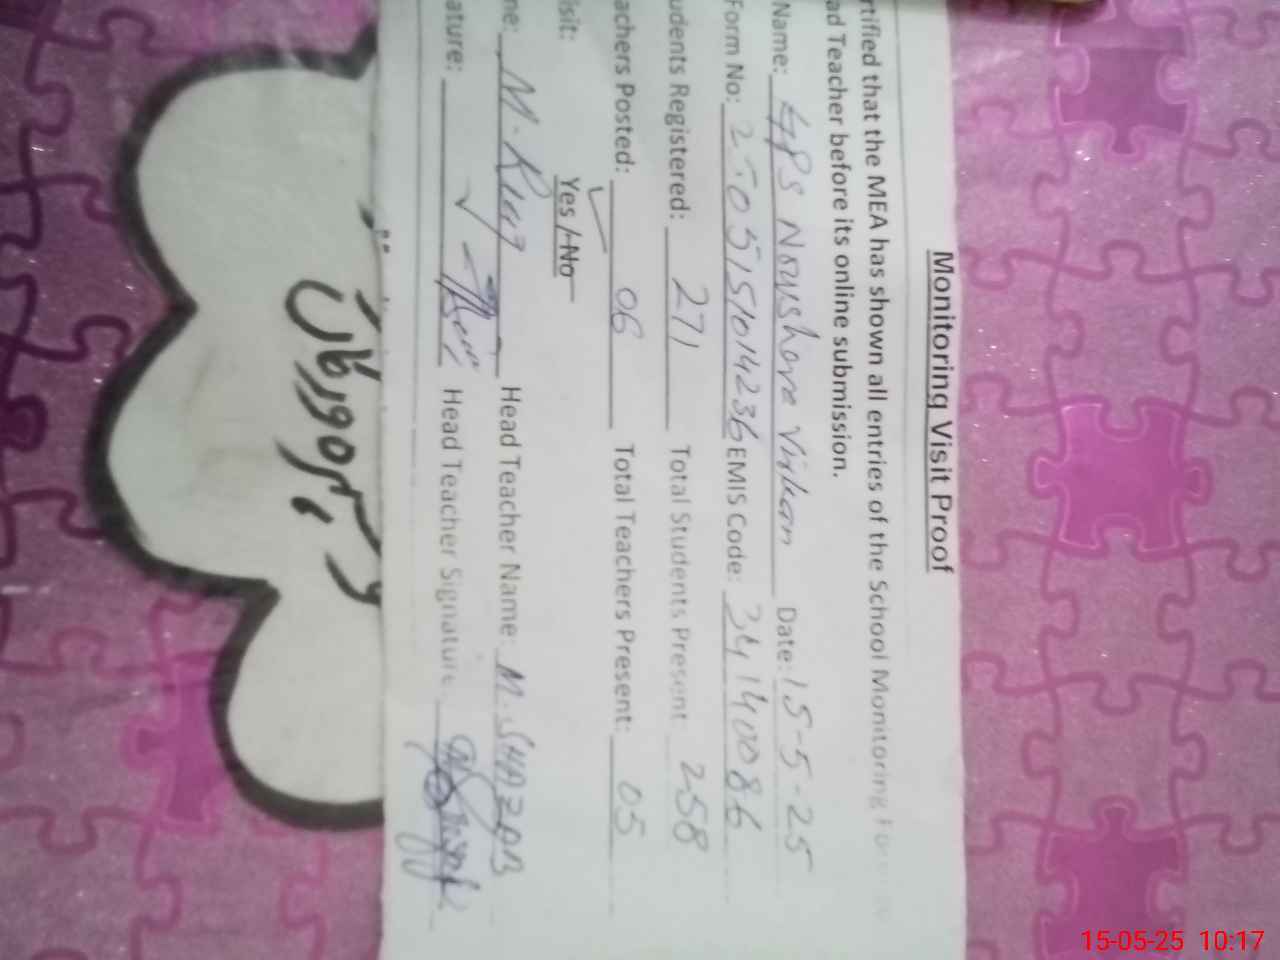 Monitoring Visit Proof
rtified that the MEA has shown all entries of the School Monitoring
ad Teacher before its online submission.
Name: GPS Noushera Virkan Date: 15-5-25
Form No: EMIS Code: 34140086
udents Registered: 271 Total Students Present 258
achers Posted: 06 Total Teachers Present: 05
isit: Yes / No
ne: M. Riaz Head Teacher Name: M. SHAZAB
ature: Head Teacher Signature
15-05-25 10:17